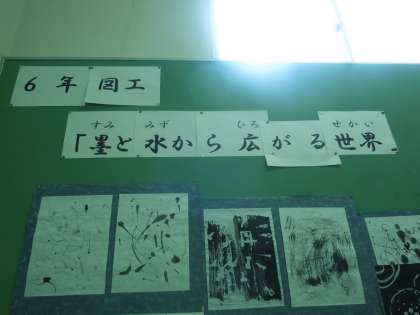 6年 図工
すみ みず ひろ せかい
「墨と水から広がる世界